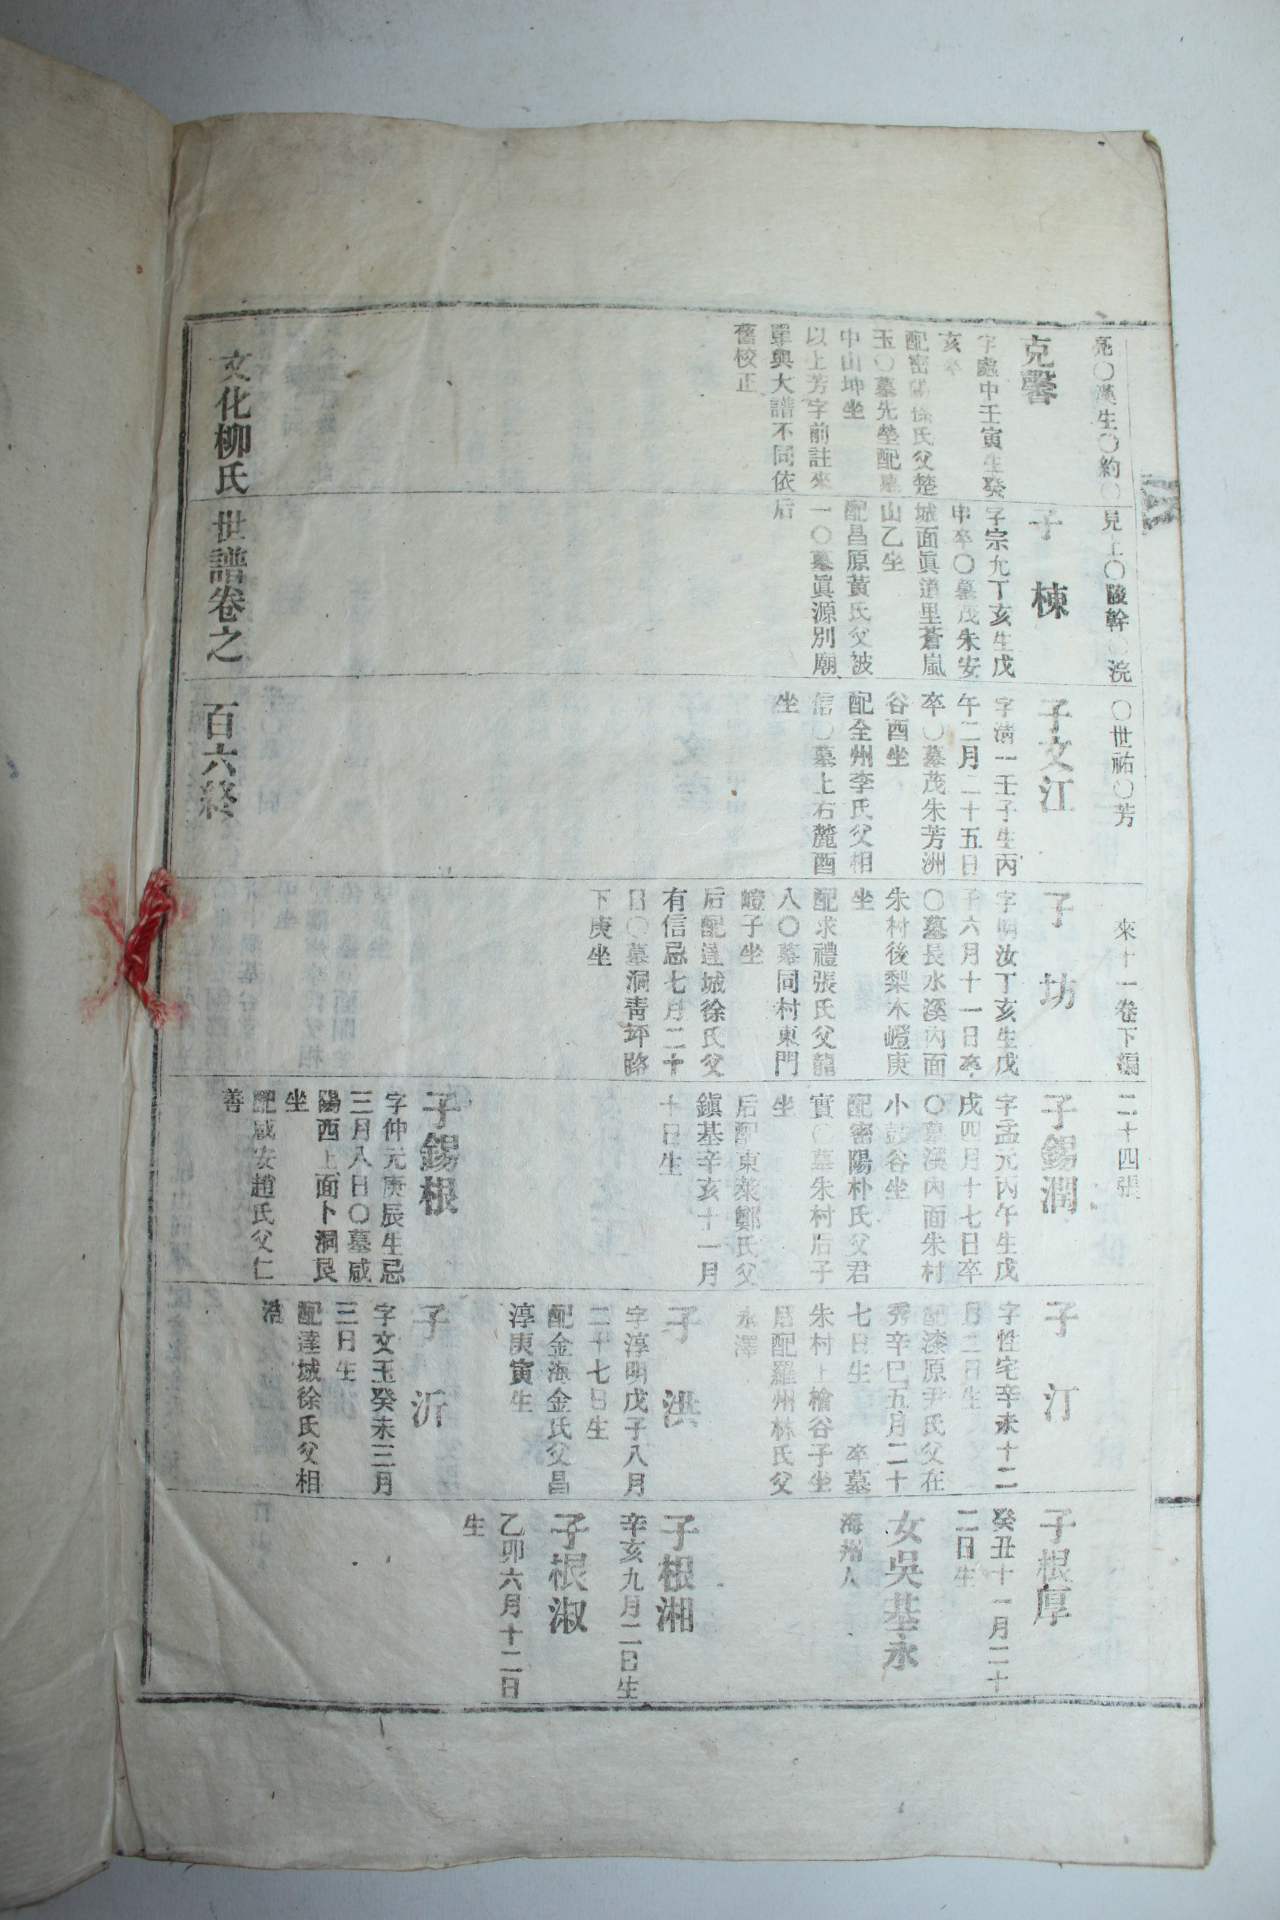 亮〇漢生〇約〇見上〇陵幹〇浣〇世祐〇芳 來十一卷下編二十四張
克馨
字處中壬寅生癸
亥卒
配密陽徐氏父楚
玉〇墓先塋配墓
中山坤坐
以上芳字前註來
單與大譜不同依
舊校正
子棟
字宗允丁亥生戊
申卒〇墓茂朱安
城面眞道里蒼嵐
山乙坐
配昌原黃氏父被
一〇墓眞源別廟
后
子文江
字淸一壬子生丙
午二月二十五日
卒〇墓茂朱芳洲
谷酉坐
配全州李氏父相
信〇墓上右麓酉
坐
子坊
字明汝丁亥生戊
子六月十一日卒
〇墓長水溪內面
朱村後梨木嶝庚
坐
配求禮張氏父龍
八〇墓同村東門
嶝子坐
后配達城徐氏父
有信忌七月二十
日〇墓洞靑坪路
下庚坐
子錫潤
字孟元丙午生戊
戌四月十七日卒
〇墓溪內面朱村
小鼓谷坐
配密陽朴氏父君
實〇墓朱村后子
坐
后配東萊鄭氏父
鎭基辛亥十一月
十日生
子錫根
字仲元庚辰生忌
三月八日〇墓咸
陽西上面卜洞艮
坐
配咸安趙氏父仁
善
子汀
字性宅辛未十二
月二日生
配漆原尹氏父在
秀辛巳五月二十
七日生 卒墓
朱村上檜谷子坐
后配羅州林氏父
永澤
子洪
字淳明戊子八月
二十七日生
配金海金氏父昌
淳庚寅生
子沂
字文玉癸未三月
三日生
配達城徐氏父相
浩
子根厚
癸丑十一月二十
二日生
女吳基永
海州人
子根湘
辛亥九月二日生
子根淑
乙卯六月十二日
生
文化柳氏世譜卷之百六終